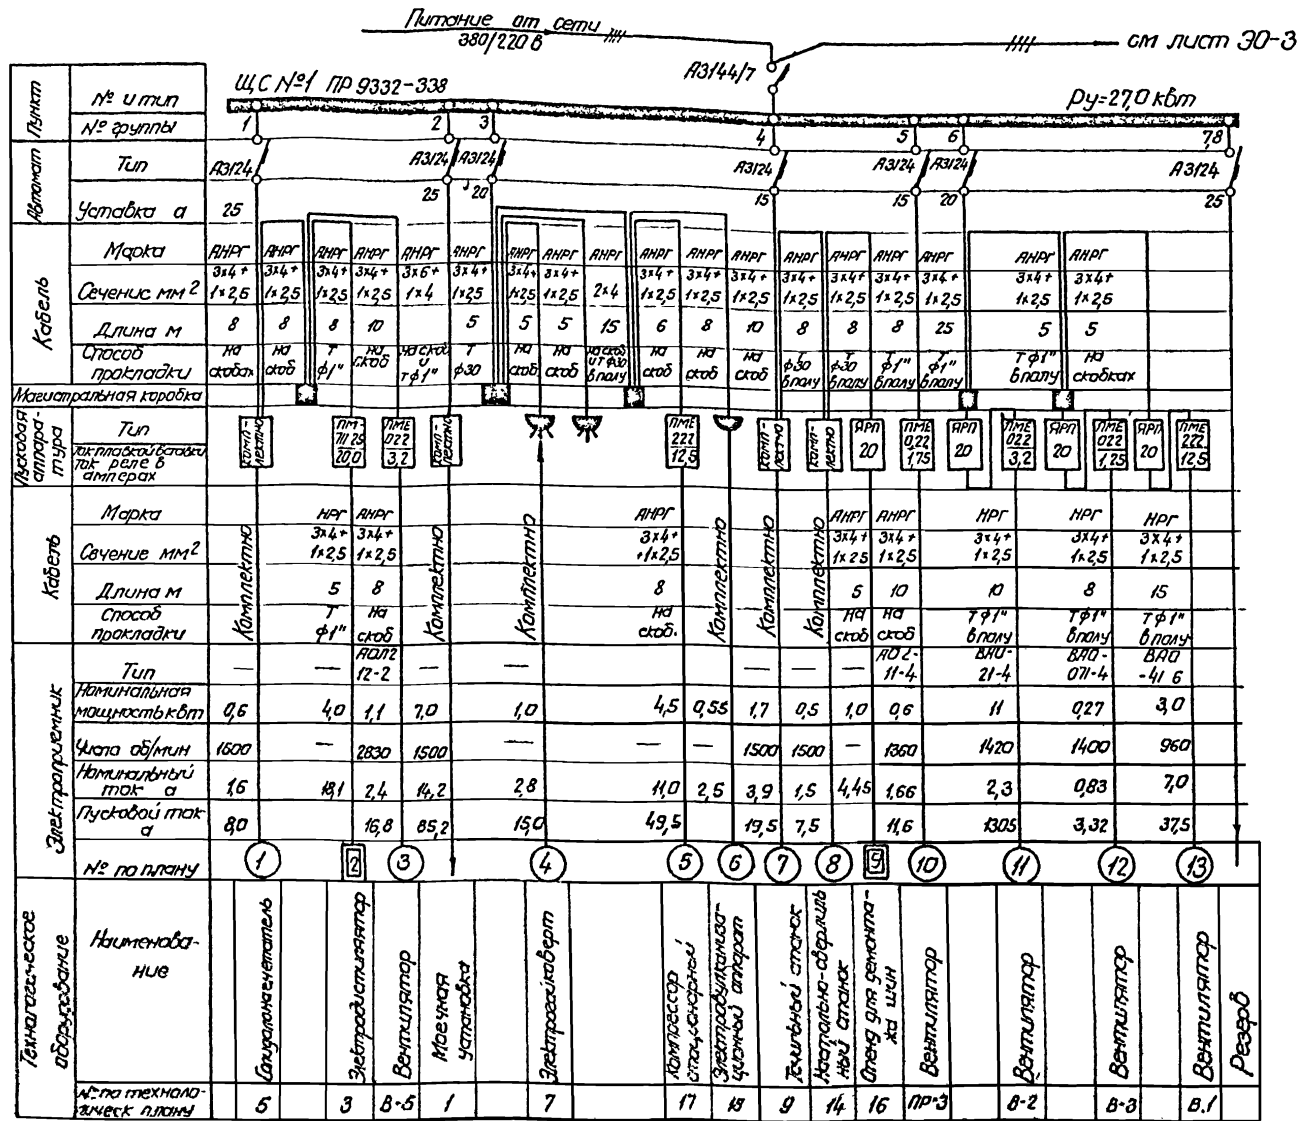 Питание от сети
380/220 В
см лист ЭО-3
А3144/7
ЩС №1 ПР 9332-338
Ру=27,0 квт
Пункт
№ и тип
№ группы
1 2 3 4 5 6 7,8
Автомат
Тип
А3124 А3124 А3124 А3124 А3124 А3124 А3124
Уставка а
25 25 20 15 15 20 25
Кабель
Марка
АНРГ АНРГ АНРГ АНРГ АНРГ АНРГ АНРГ АНРГ АНРГ АНРГ АНРГ АНРГ АНРГ АНРГ АНРГ АНРГ АНРГ АНРГ
Сечение мм²
3х4+ 3х4+ 3х4+ 3х4+ 3х6+ 3х4+ 3х4+ 3х4+ 3х4+ 3х4+ 3х4+ 3х4+ 3х4+ 3х4+ 3х4+ 3х4+ 3х4+
1х2,5 1х2,5 1х2,5 1х2,5 1х4 1х2,5 1х2,5 1х2,5 2х4 1х2,5 1х2,5 1х2,5 1х2,5 1х2,5 1х2,5 1х2,5 1х2,5 1х2,5
Длина м
8 8 8 10 5 5 5 15 6 8 10 8 8 8 25 5 5
Способ
прокладки
на скобах
на скоб
Т ф1"
на скоб
на скоб и тф1"
Т ф30
на скоб
на скоб
на скоб и Тф30 в полу
на скоб
на скоб
на скоб
Т ф30 в полу
Т ф30 в полу
Т ф1" в полу
Т ф1" в полу
Тф1" в полу
на скобках
Магистральная коробка
Пусковая аппаратура
Тип
Ток плавкой вставки
Ток реле в
амперах
Комплектно
ПМ-
71125
20,0
ПМЕ
022
3,2
Комплектно
ПМЕ
222
12,5
Комплектно
Комплектно
ЯРП
20
ПМЕ
0,22
1,75
ЯРП
20
ПМЕ
022
3,2
ЯРП
20
ПМЕ
022
1,25
ЯРП
20
ПМЕ
222
12,5
Кабель
Марка
НРГ АНРГ АНРГ АНРГ АНРГ НРГ НРГ НРГ
Сечение мм²
3х4+ 3х4+ 3х4+ 3х4+ 3х4+ 3х4+ 3х4+ 3х4+
1х2,5 1х2,5 +1х2,5 1х2,5 1х2,5 1х2,5 1х2,5 1х2,5
Длина м
5 8 8 5 10 10 8 15
Способ
прокладки
Т на на на на Тф1" Тф1" Тф1"
ф1" скоб скоб. скоб скоб в полу в полу в полу
Комплектно Комплектно Комплектно Комплектно Комплектно Комплектно
Электроприемник
Тип
— — АОЛ2 — — — — — АО2- ВАО- ВАО- ВАО
12-2 11-4 21-4 071-4 -41 6
Номинальная
мощность квт
0,6 4,0 1,1 7,0 1,0 4,5 0,55 1,7 0,5 1,0 0,6 11 0,27 3,0
Число об/мин
1500 — 2830 1500 — — — 1500 1500 — 1360 1420 1400 960
Номинальный
ток а
1,6 18,1 2,4 14,2 2,8 11,0 2,5 3,9 1,5 4,45 1,66 2,3 0,83 7,0
Пусковой ток
а
8,0 16,8 85,2 15,0 49,5 19,5 7,5 11,6 13,05 3,32 37,5
№ по плану
1 2 3 4 5 6 7 8 9 10 11 12 13
Технологическое
оборудование
Наименова-
ние
Солидолонагнетатель
Электродистиллятор
Вентилятор
Моечная
установка
Электрогайковерт
Компрессор
стационарный
Электровулканиза-
ционный аппарат
Точильный станок
Настольно-сверлиль
ный станок
Стенд для демонта-
жа шин
Вентилятор
Вентилятор
Вентилятор
Вентилятор
Резерв
№ по техноло-
гическ плану
5 3 В-5 1 7 17 18 9 14 16 ПР-3 В-2 В-3 В.1